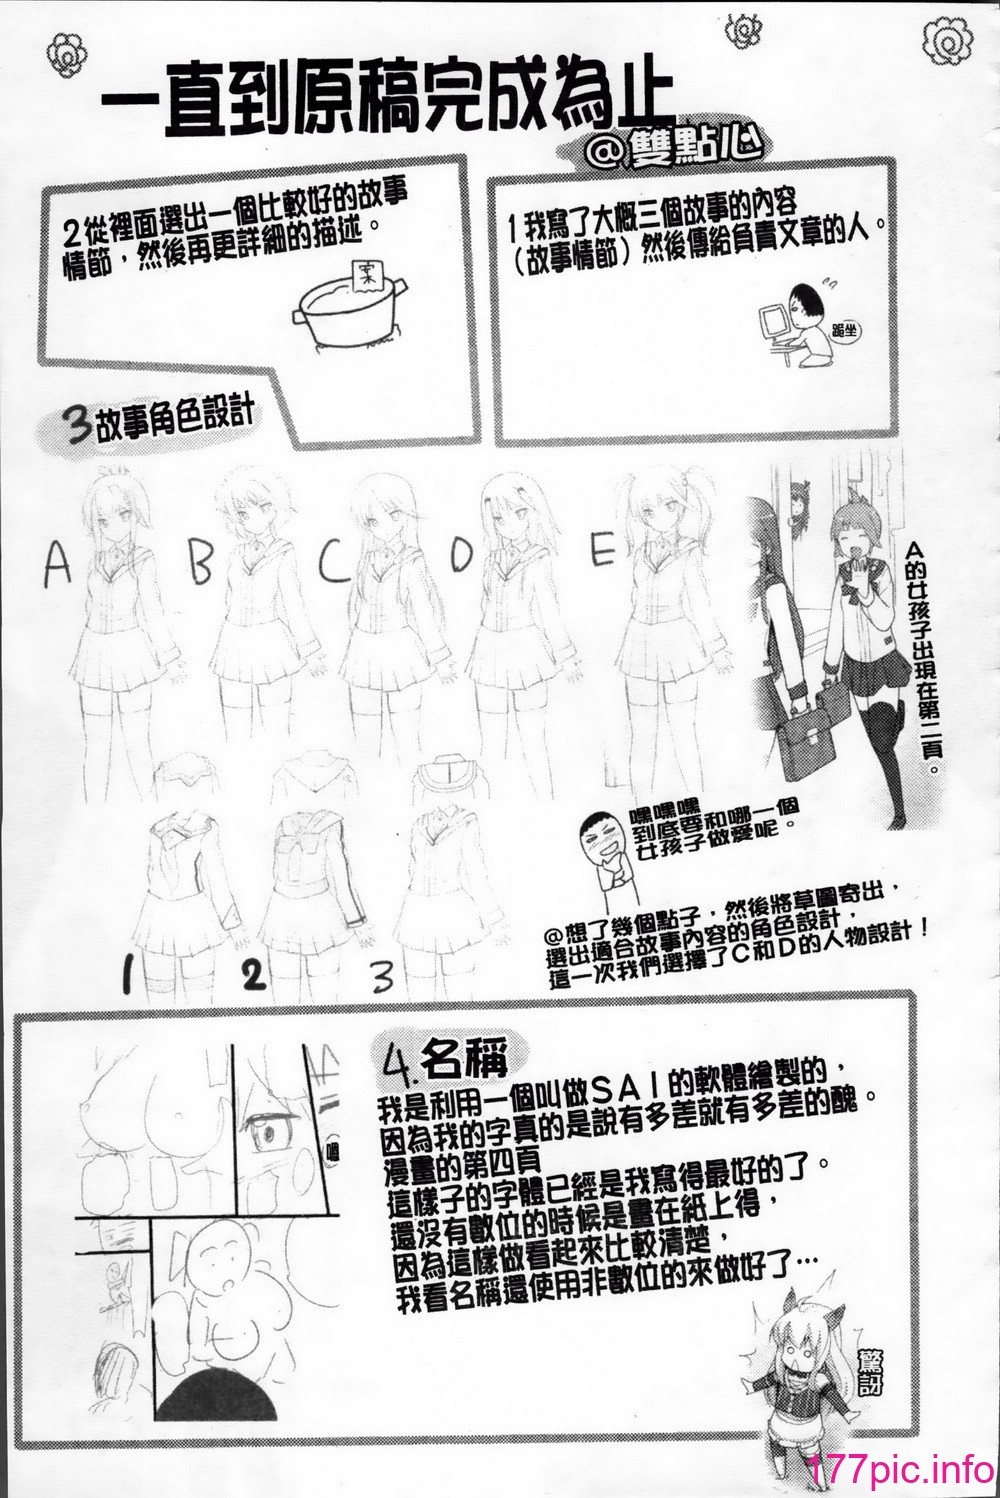 一直到原稿完成為止
@雙點心
1我寫了大概三個故事的內容
(故事情節)然後傳給負責文章的人。
跪坐
2從裡面選出一個比較好的故事
情節,然後再更詳細的描述。
案
3故事角色設計
A
B
C
D
E
A的女孩子出現在第二頁。
1
2
3
嘿嘿嘿
到底要和哪一個
女孩子做愛呢。
@想了幾個點子,然後將草圖寄出,
選出適合故事內容的角色設計,
這一次我們選擇了C和D的人物設計!
4.名稱
我是利用一個叫做SAI的軟體繪製的,
因為我的字真的是說有多差就有多差的醜。
漫畫的第四頁
這樣子的字體已經是我寫得最好的了。
還沒有數位的時候是畫在紙上得,
因為這樣做看起來比較清楚,
我看名稱還使用非數位的來做好了…
驚訝
177pic.info